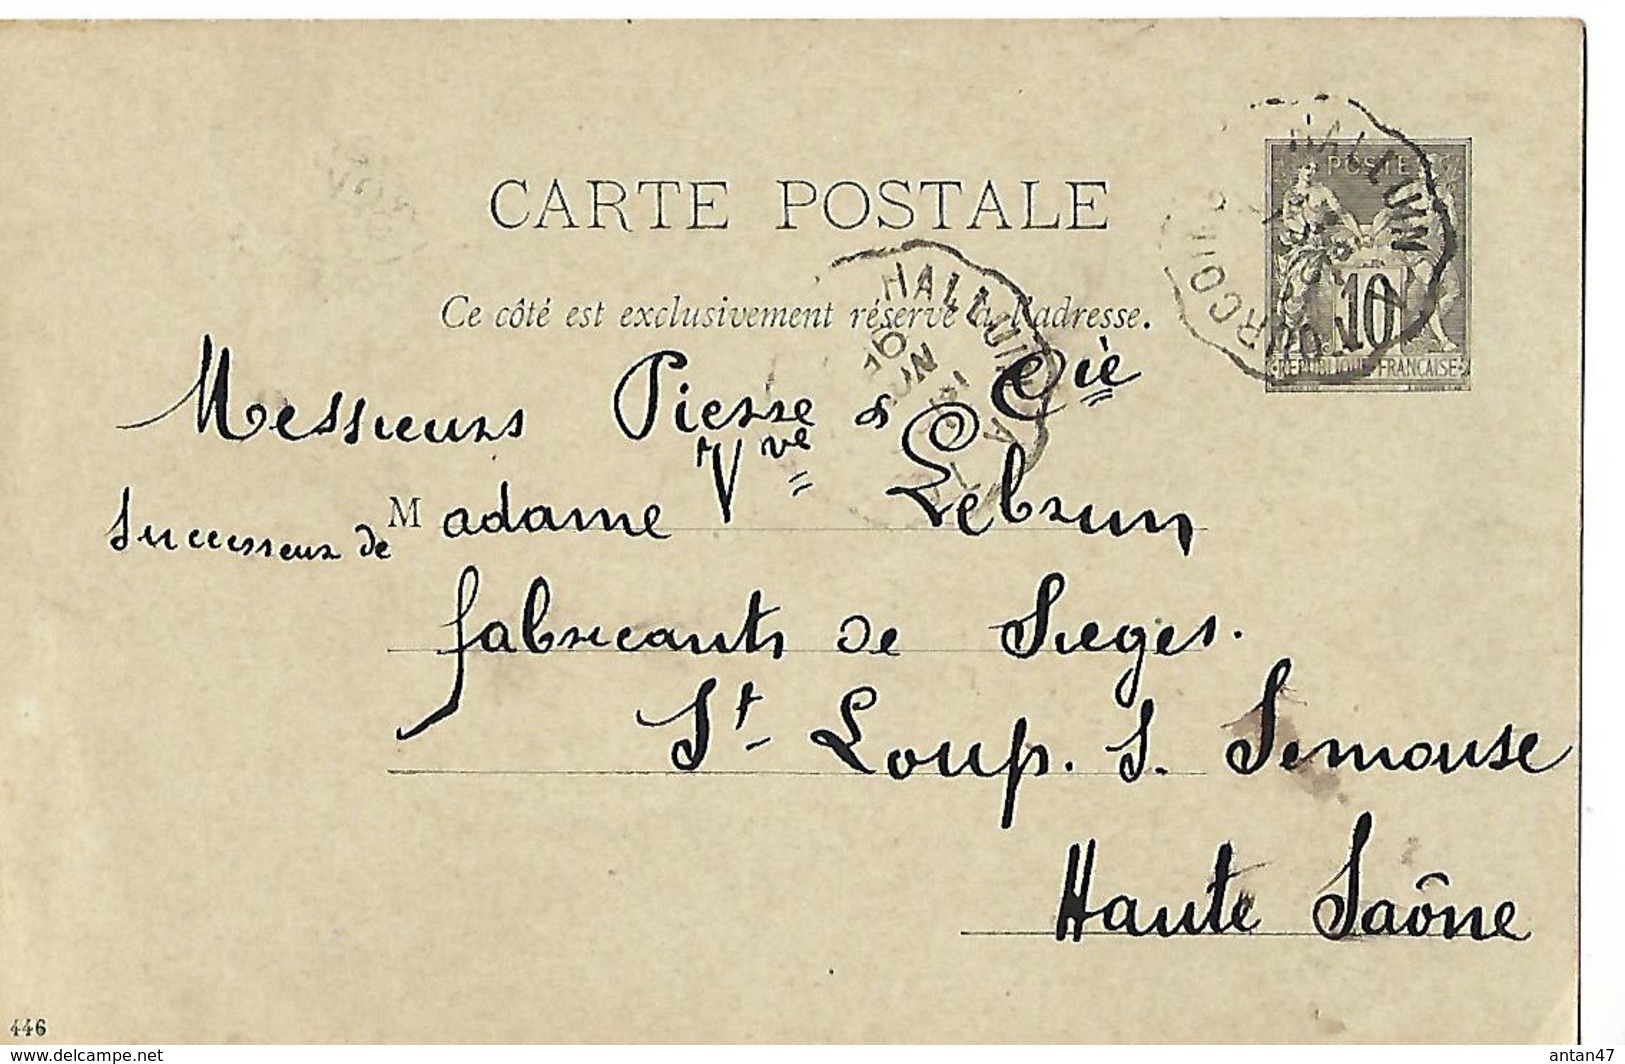 CARTE POSTALE
POSTES
10
REPUBLIQUE FRANCAISE
HALLUIN
Ce côté est exclusivement réservé à l'adresse.
HALLUIN
Messieurs Pierre & Cie
Successeur de Madame Vve Lebrun
fabricants de Sieges.
St Loup. s. Semouse
Haute Saône
446
www.delcampe.net
antan47